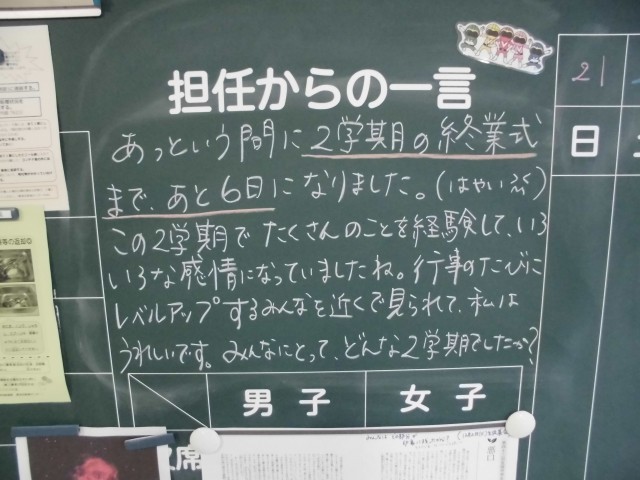 担任からの一言
あっという間に2学期の終業式
まで、あと6日になりました。(はやい〜)
この2学期でたくさんのことを経験して、いろ
いろな感情になっていましたね。行事のたびに
レベルアップするみんなを近くで見られて、私は
うれしいです。みんなにとって、どんな2学期でしたか?
男子
女子
席
21
日